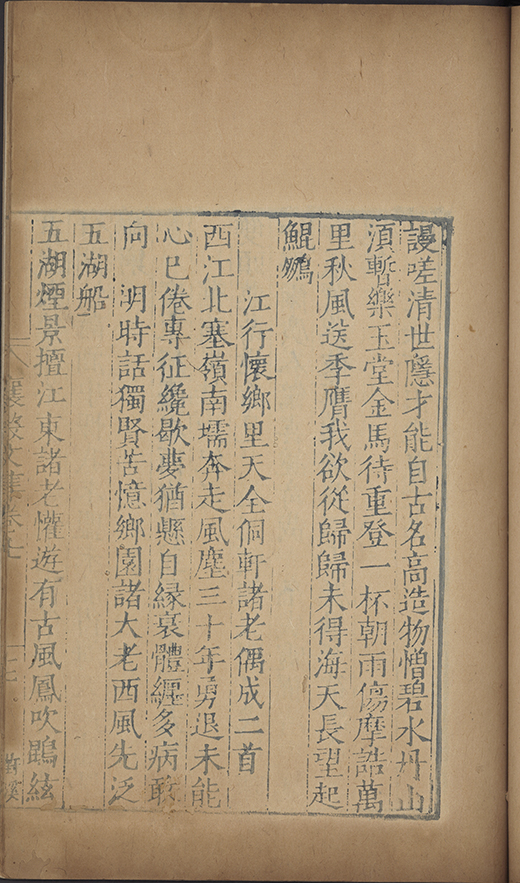 謾嗟清世隱才能自古名高造物憎碧水丹山
須暫樂玉堂金馬待重登一杯朝雨傷摩詰萬
里秋風送季鷹我欲從歸歸未得海天長望起
鯤鵬
江行懷鄉里天全侗軒諸老偶成二首
西江北塞嶺南壖奔走風塵三十年勇退未能
心已倦專征纔歇夢猶懸自緣衰體纏多病敢
向　明時話獨賢苦憶鄉園諸大老西風先泛
五湖船
五湖煙景擅江東諸老懽遊有古風鳳吹鵾絃
襄毅文集卷七